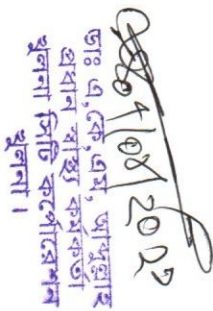 ০৭/০৪/2022
ডাঃ এ,কে,এম, আব্দুল্লাহ
প্রধান স্বাস্থ্য কর্মকর্তা
খুলনা সিটি কর্পোরেশন
খুলনা।